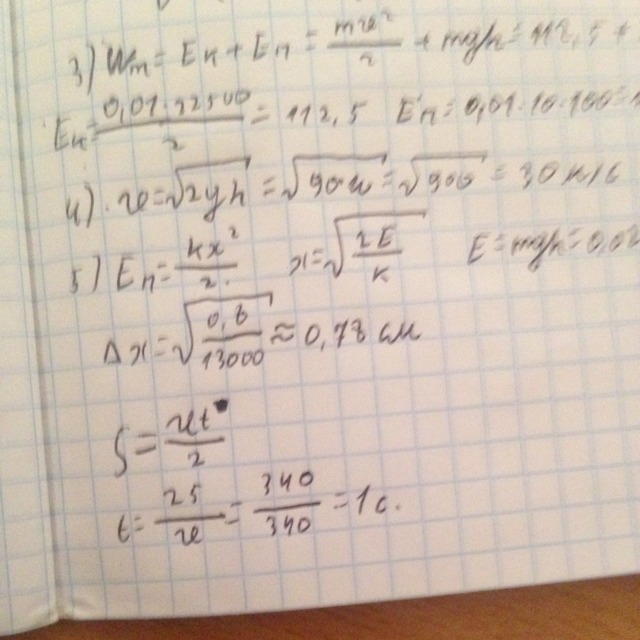 3) Wm = Eк + Eп = mv²/2 + mgh = 112,5 +
Eк = 0,01·22500/2 = 112,5 Eп = 0,01·10·100 =
4) v = √2gh = √900 = √900 = 30 м/с
5) Eп = kx²/2 x = √2E/k E = mgh = 0,0
Δx = √0,8/13000 ≈ 0,78 см
S = vt/2
t = 2S/v = 340/340 = 1 с.